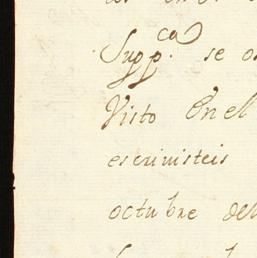 Supp.ca se
Visto En el
escriuisteis
octubre del